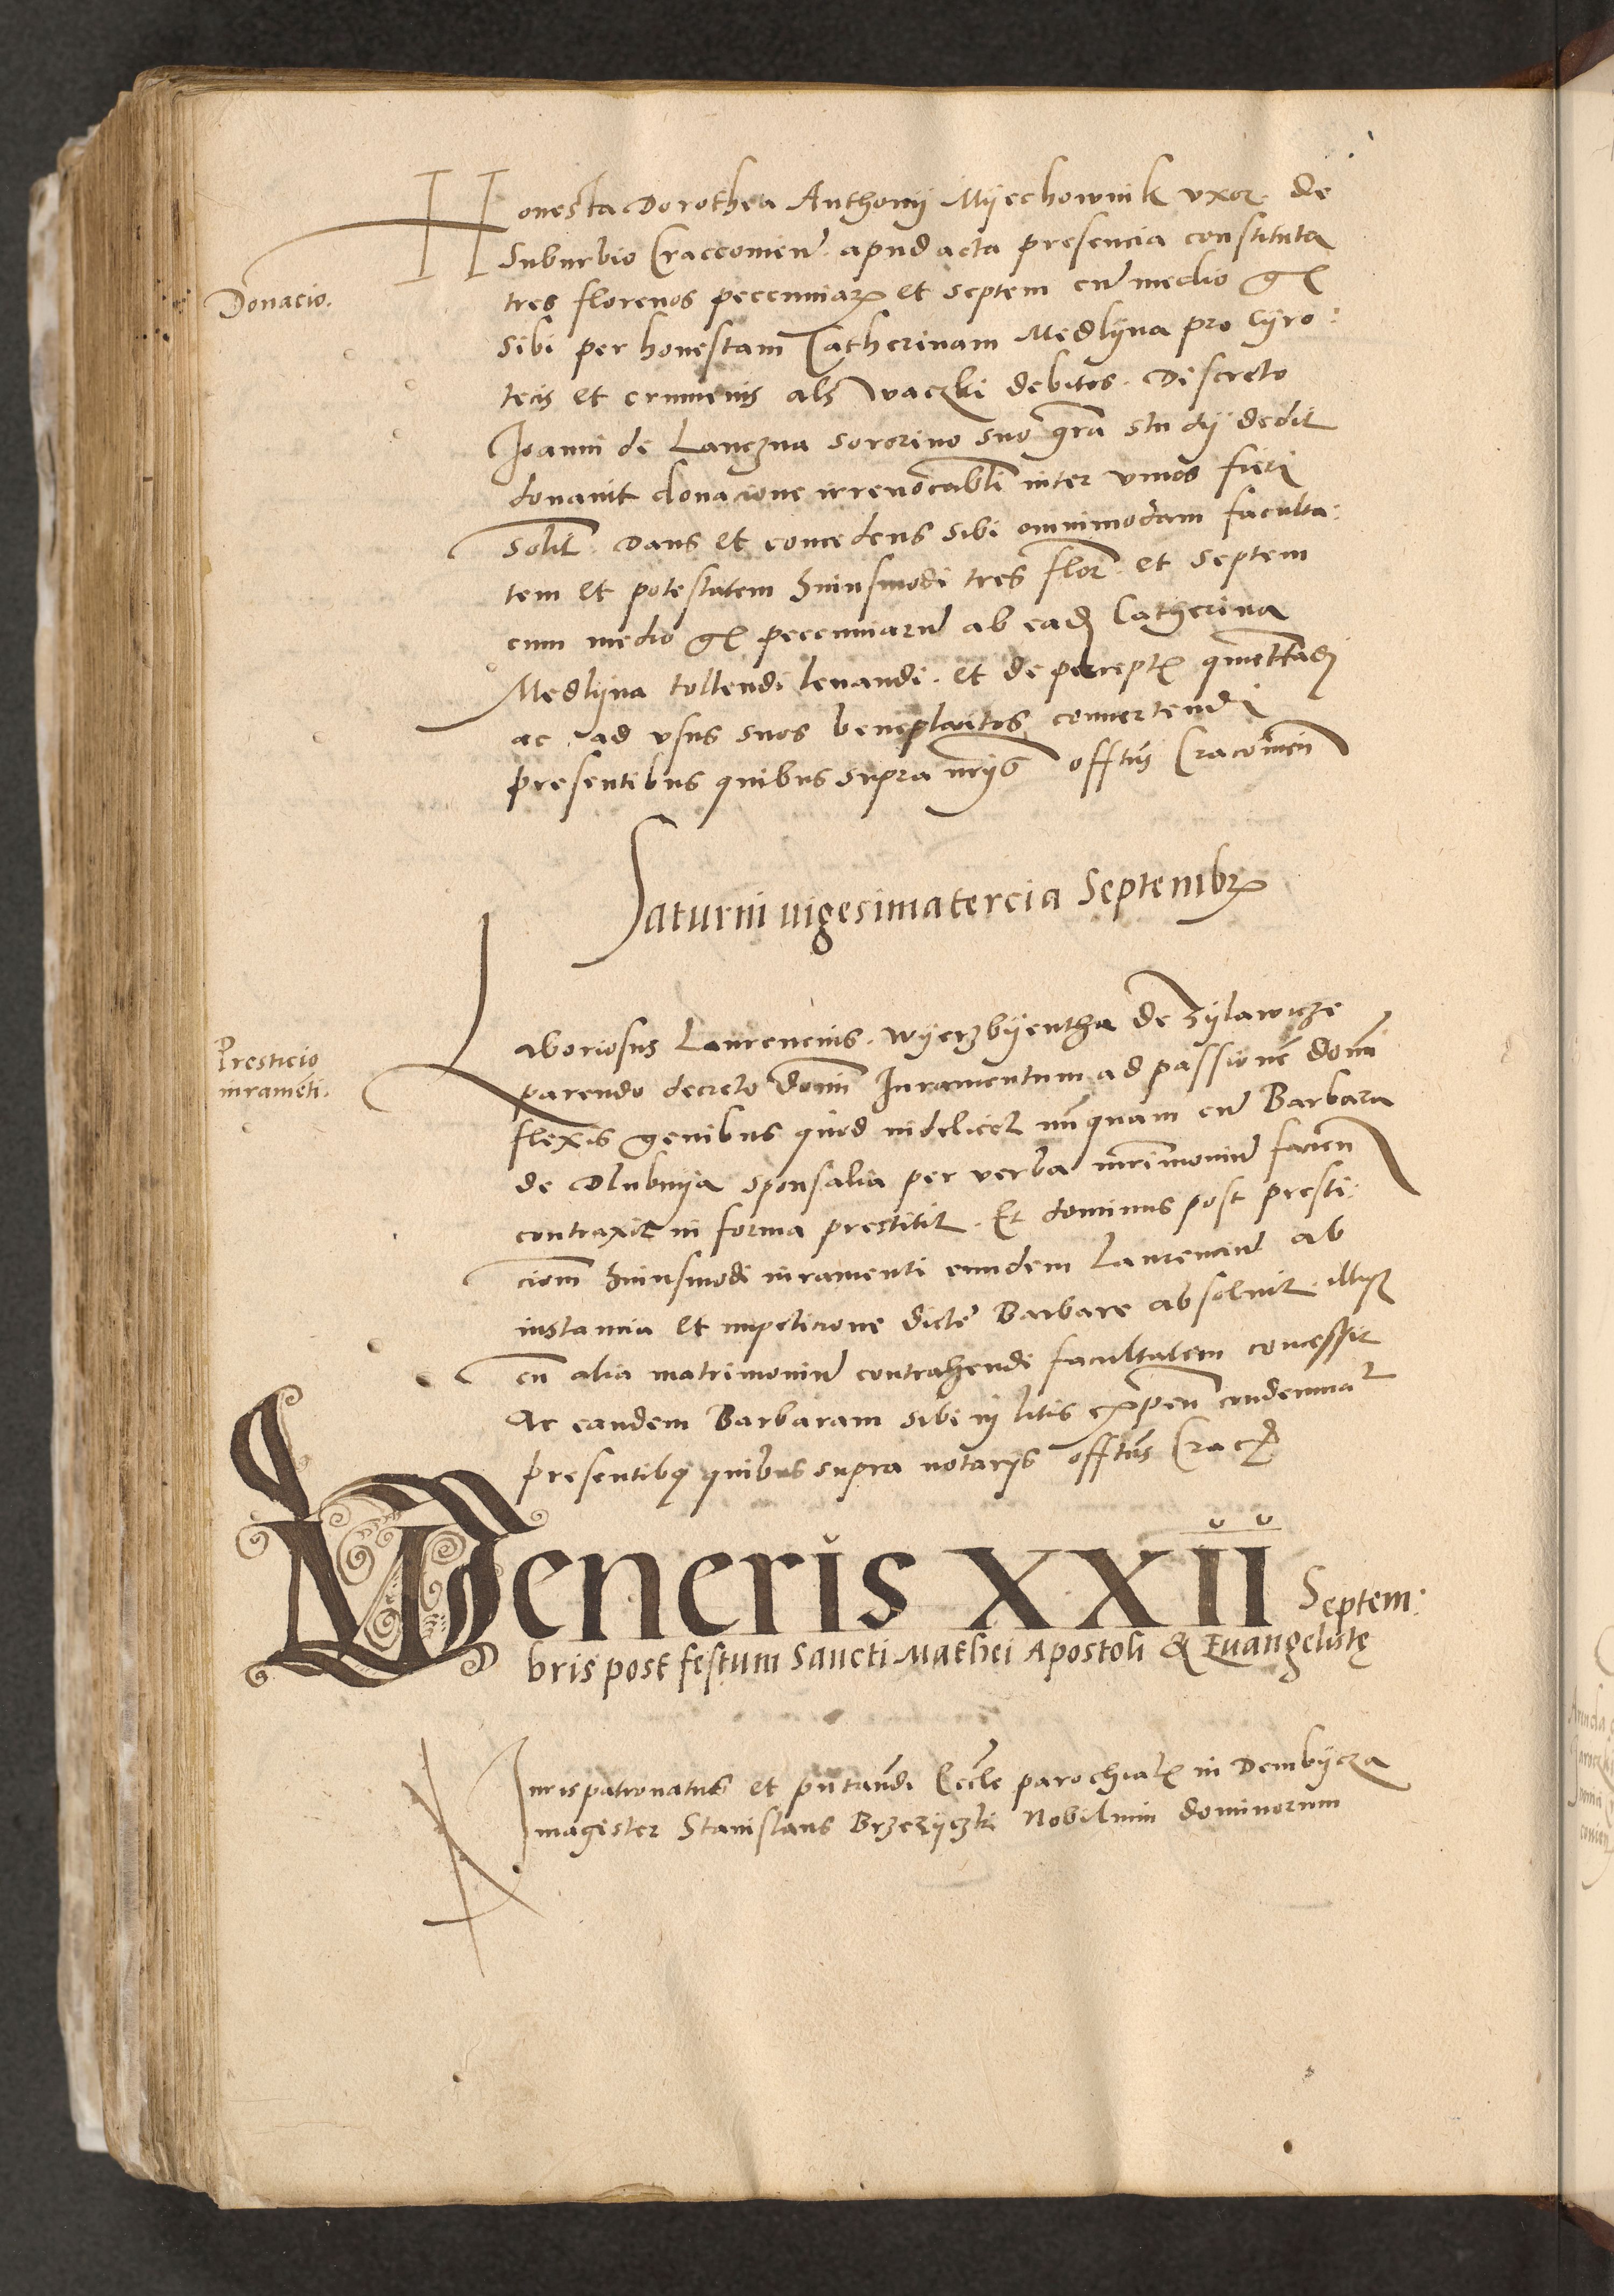 Honesta Dorothea Anthonij Mijechownik vxor de
Suburbio Craccouien apud acta presencia constituta
Donacio.
tres florenos peccuniar et septem cu medio g
sibi per honestam Catherinam Medlijna pro Cyro:
tecis et crumenis als vaczki debitos. Discreto
Joanni de Lanczna sororino suo gra studij dedit
donauit donacione irreuocabli inter viuos fieri
solit. Dans et concedens sibi omnimodam faculta:
tem et potestatem huiusmodi tres flor et septem
cum medio g peccuniaru ab ead Catherina
Medlijna tollendi leuandi. et de percept quittad
ac ad vsus suos beneplacitos conuertendi
presentibus quibus supra nrijs offtus Cracouien
Saturni uigesimatercia Septembr
Laboriosus Laurencius. Wyerzbyentha de Zylawicze
Presticio
iurameti.
parendo decreto domi Iuramentum ad passione domi
flexis genibus quod uidelicet nunquam cu Barbara
de Dlubnija sponsalia per verba mrimoniu facien
contraxit in forma prestitit. Et dominus post presti:
ciom huiusmodi iuramenti eundem Laurenciu ab
instancia et impeticione dicte Barbare absoluit illiq
cu alia matrimoniu contrahendi facultatem concessit
Ac eandem Barbaram sibi in litis expen cndemnat
presentibq quibus supra notarijs offtus Crac
Veneris XXII Septem:
bris post festum Sancti Mathei Apostoli & Euangelistę
Iurispatronatus et pntandi Eccle parochial in Dembycza
magister Stanislaus Brzezyczki Nobilium dominorum